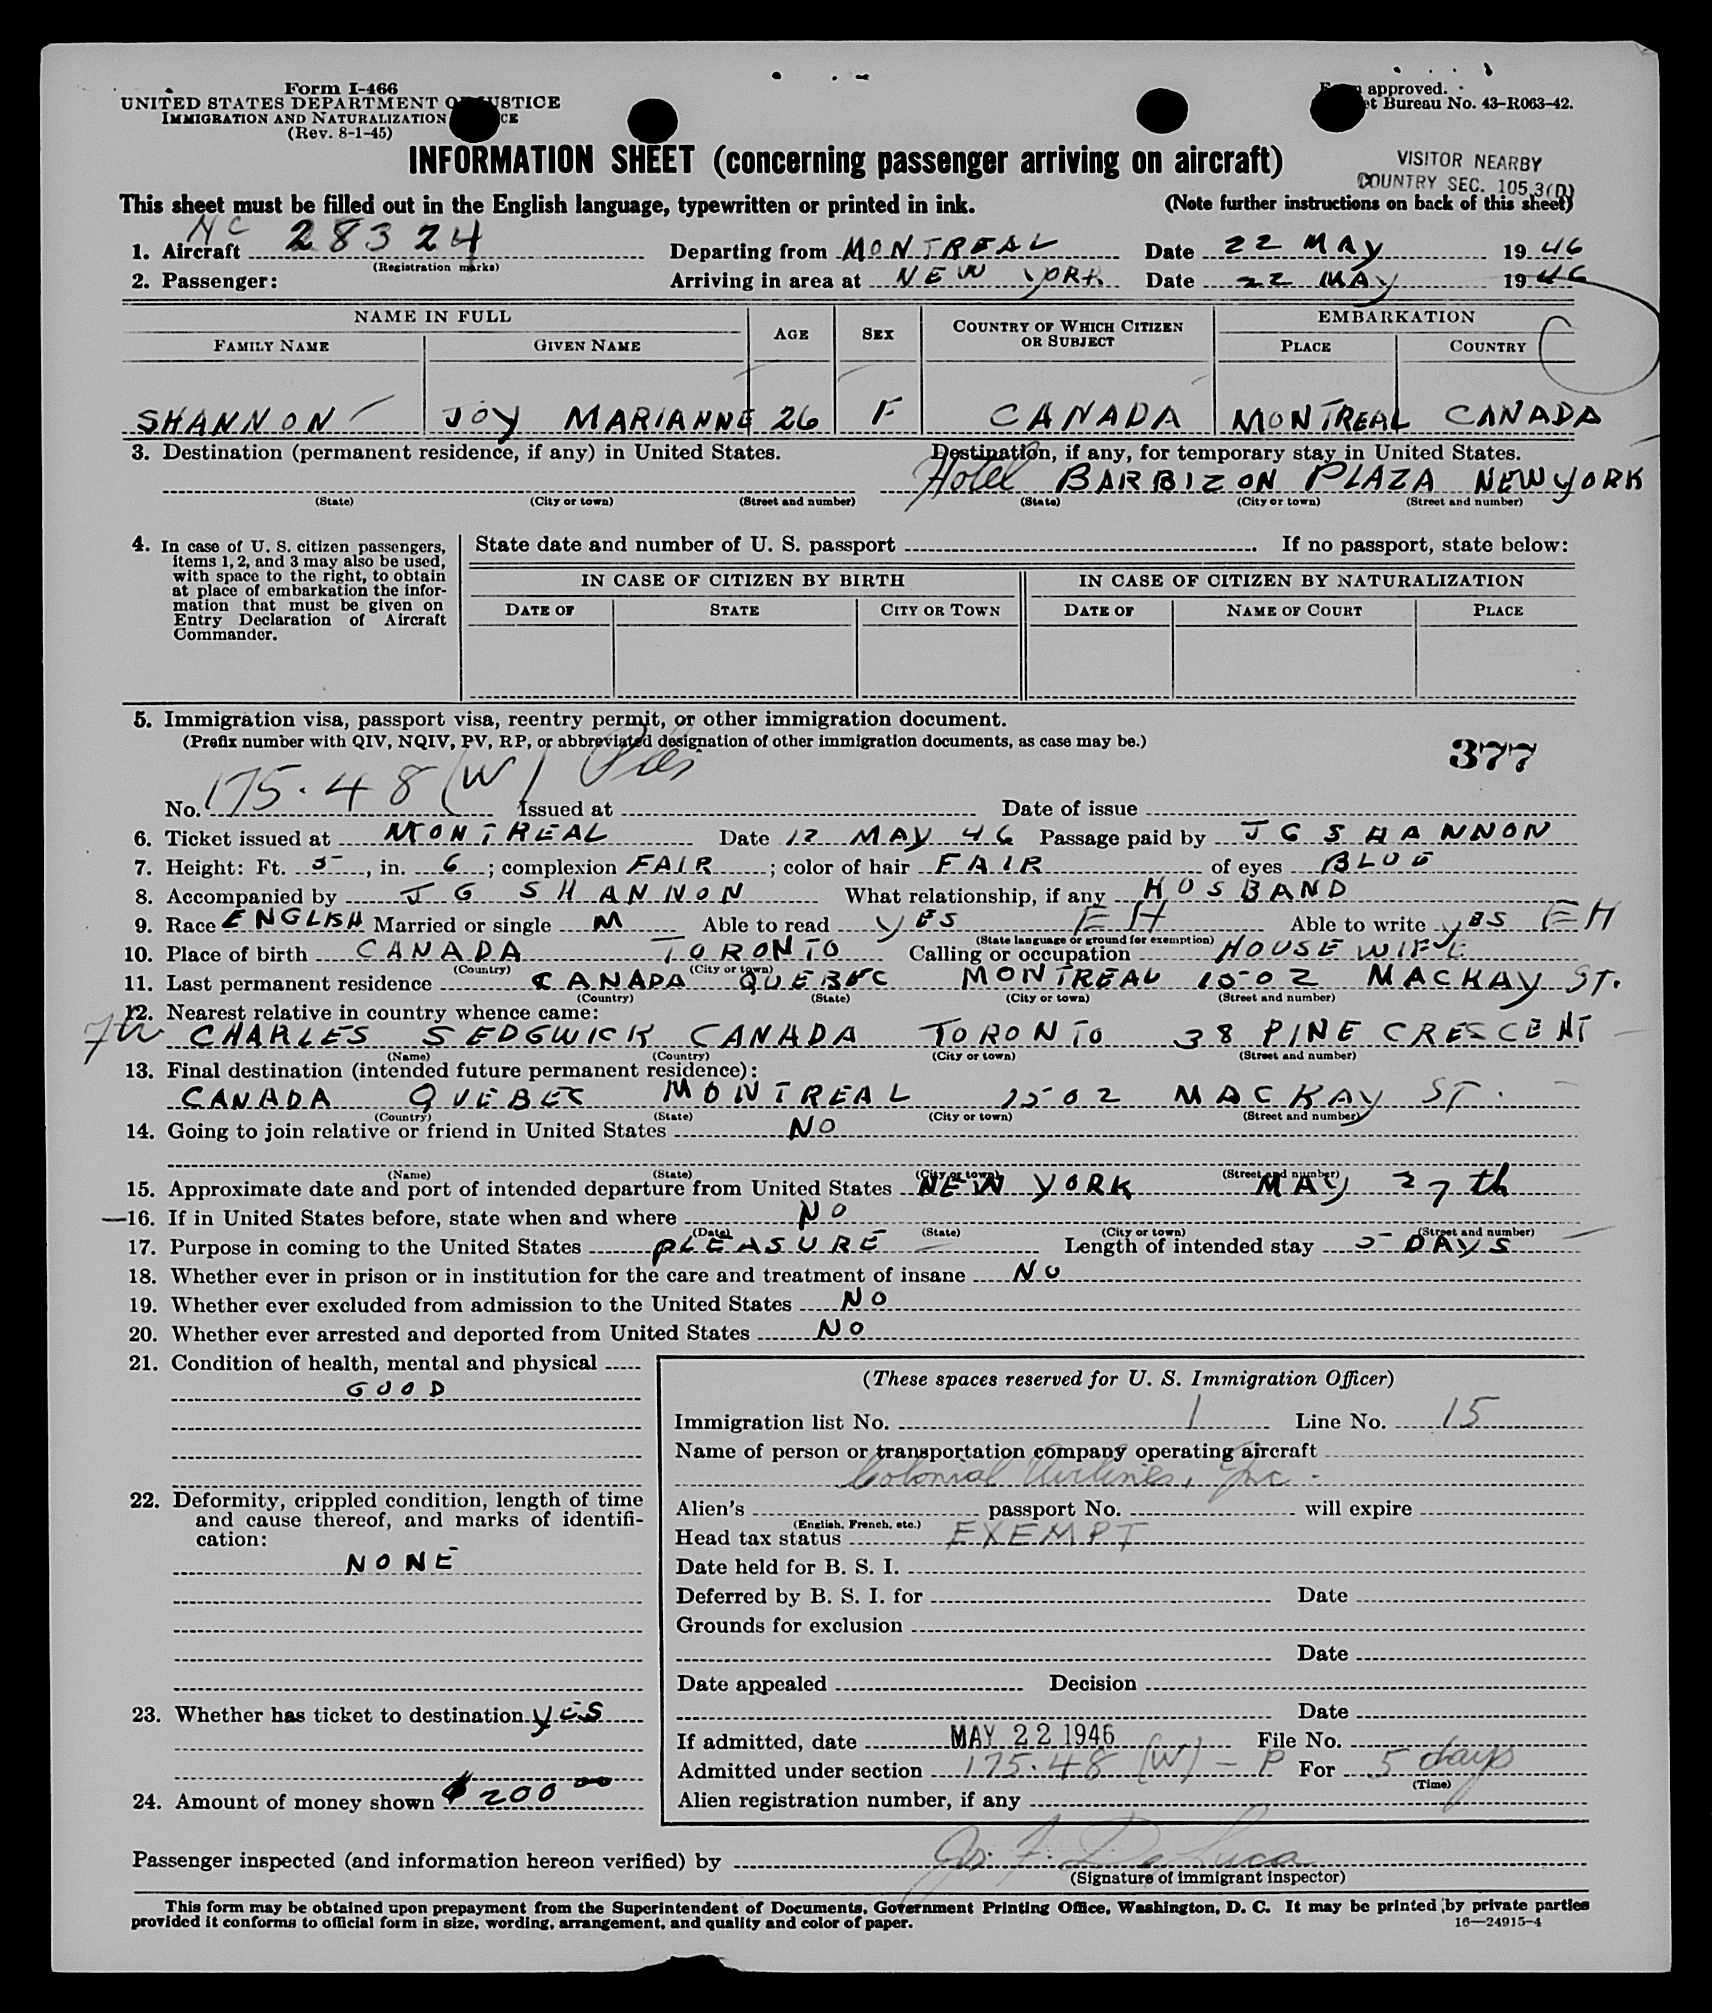 Form I-466
UNITED STATES DEPARTMENT OF JUSTICE
IMMIGRATION AND NATURALIZATION
(Rev. 8-1-45)
approved.
Bureau No. 43-R063-42.
INFORMATION SHEET (concerning passenger arriving on aircraft)
VISITOR NEARBY
COUNTRY SEC. 105.3(D)
This sheet must be filled out in the English language, typewritten or printed in ink.
(Note further instructions on back of this sheet)
1. Aircraft NC 28324 Departing from MONTREAL Date 22 MAY 1946
(Registration marks)
2. Passenger: Arriving in area at NEW YORK Date 22 MAY 1946
NAME IN FULL AGE SEX COUNTRY OF WHICH CITIZEN OR SUBJECT EMBARKATION
FAMILY NAME GIVEN NAME PLACE COUNTRY
SHANNON JOY MARIANNE 26 F CANADA MONTREAL CANADA
3. Destination (permanent residence, if any) in United States. Destination, if any, for temporary stay in United States.
Hotel BARBIZON PLAZA NEW YORK
(State) (City or town) (Street and number) (State) (City or town) (Street and number)
4. In case of U. S. citizen passengers, items 1, 2, and 3 may also be used, with space to the right, to obtain at place of embarkation the information that must be given on Entry Declaration of Aircraft Commander.
State date and number of U. S. passport If no passport, state below:
IN CASE OF CITIZEN BY BIRTH IN CASE OF CITIZEN BY NATURALIZATION
DATE OF STATE CITY OR TOWN DATE OF NAME OF COURT PLACE
5. Immigration visa, passport visa, reentry permit, or other immigration document.
(Prefix number with QIV, NQIV, PV, RP, or abbreviated designation of other immigration documents, as case may be.)
377
No. 175.48 (W) Issued at Date of issue
6. Ticket issued at MONTREAL Date 12 MAY 46 Passage paid by J G SHANNON
7. Height: Ft. 5, in. 6; complexion FAIR; color of hair FAIR of eyes BLUE
8. Accompanied by J G SHANNON What relationship, if any HUSBAND
9. Race ENGLISH Married or single M Able to read YES EH Able to write YES EH
(State language or ground for exemption)
10. Place of birth CANADA TORONTO Calling or occupation HOUSEWIFE
(Country) (City or town)
11. Last permanent residence CANADA QUEBEC MONTREAL 1502 MACKAY ST.
(Country) (State) (City or town) (Street and number)
12. Nearest relative in country whence came:
CHARLES SEDGWICK CANADA TORONTO 38 PINE CRESCENT
(Name) (Country) (City or town) (Street and number)
13. Final destination (intended future permanent residence):
CANADA QUEBEC MONTREAL 1502 MACKAY ST.
(Country) (State) (City or town) (Street and number)
14. Going to join relative or friend in United States NO
(Name) (State) (City or town) (Street and number)
15. Approximate date and port of intended departure from United States NEW YORK MAY 27th
16. If in United States before, state when and where NO
(Date) (State) (City or town) (Street and number)
17. Purpose in coming to the United States PLEASURE Length of intended stay 5 DAYS
18. Whether ever in prison or in institution for the care and treatment of insane NO
19. Whether ever excluded from admission to the United States NO
20. Whether ever arrested and deported from United States NO
21. Condition of health, mental and physical
GOOD
22. Deformity, crippled condition, length of time
and cause thereof, and marks of identifi-
cation:
NONE
23. Whether has ticket to destination YES
24. Amount of money shown $200 00
(These spaces reserved for U. S. Immigration Officer)
Immigration list No. 1 Line No. 15
Name of person or transportation company operating aircraft
Colonial Airlines, Inc.
Alien's passport No. will expire
(English, French, etc.)
Head tax status EXEMPT
Date held for B. S. I.
Deferred by B. S. I. for Date
Grounds for exclusion
Date
Date appealed Decision
Date
If admitted, date MAY 22 1946 File No.
Admitted under section 175.48 (W) - P For 5 days
(Time)
Alien registration number, if any
Passenger inspected (and information hereon verified) by Jos. F. DeLuca
(Signature of immigrant inspector)
This form may be obtained upon prepayment from the Superintendent of Documents, Government Printing Office, Washington, D. C. It may be printed by private parties
provided it conforms to official form in size, wording, arrangement, and quality and color of paper.
16—24915-4